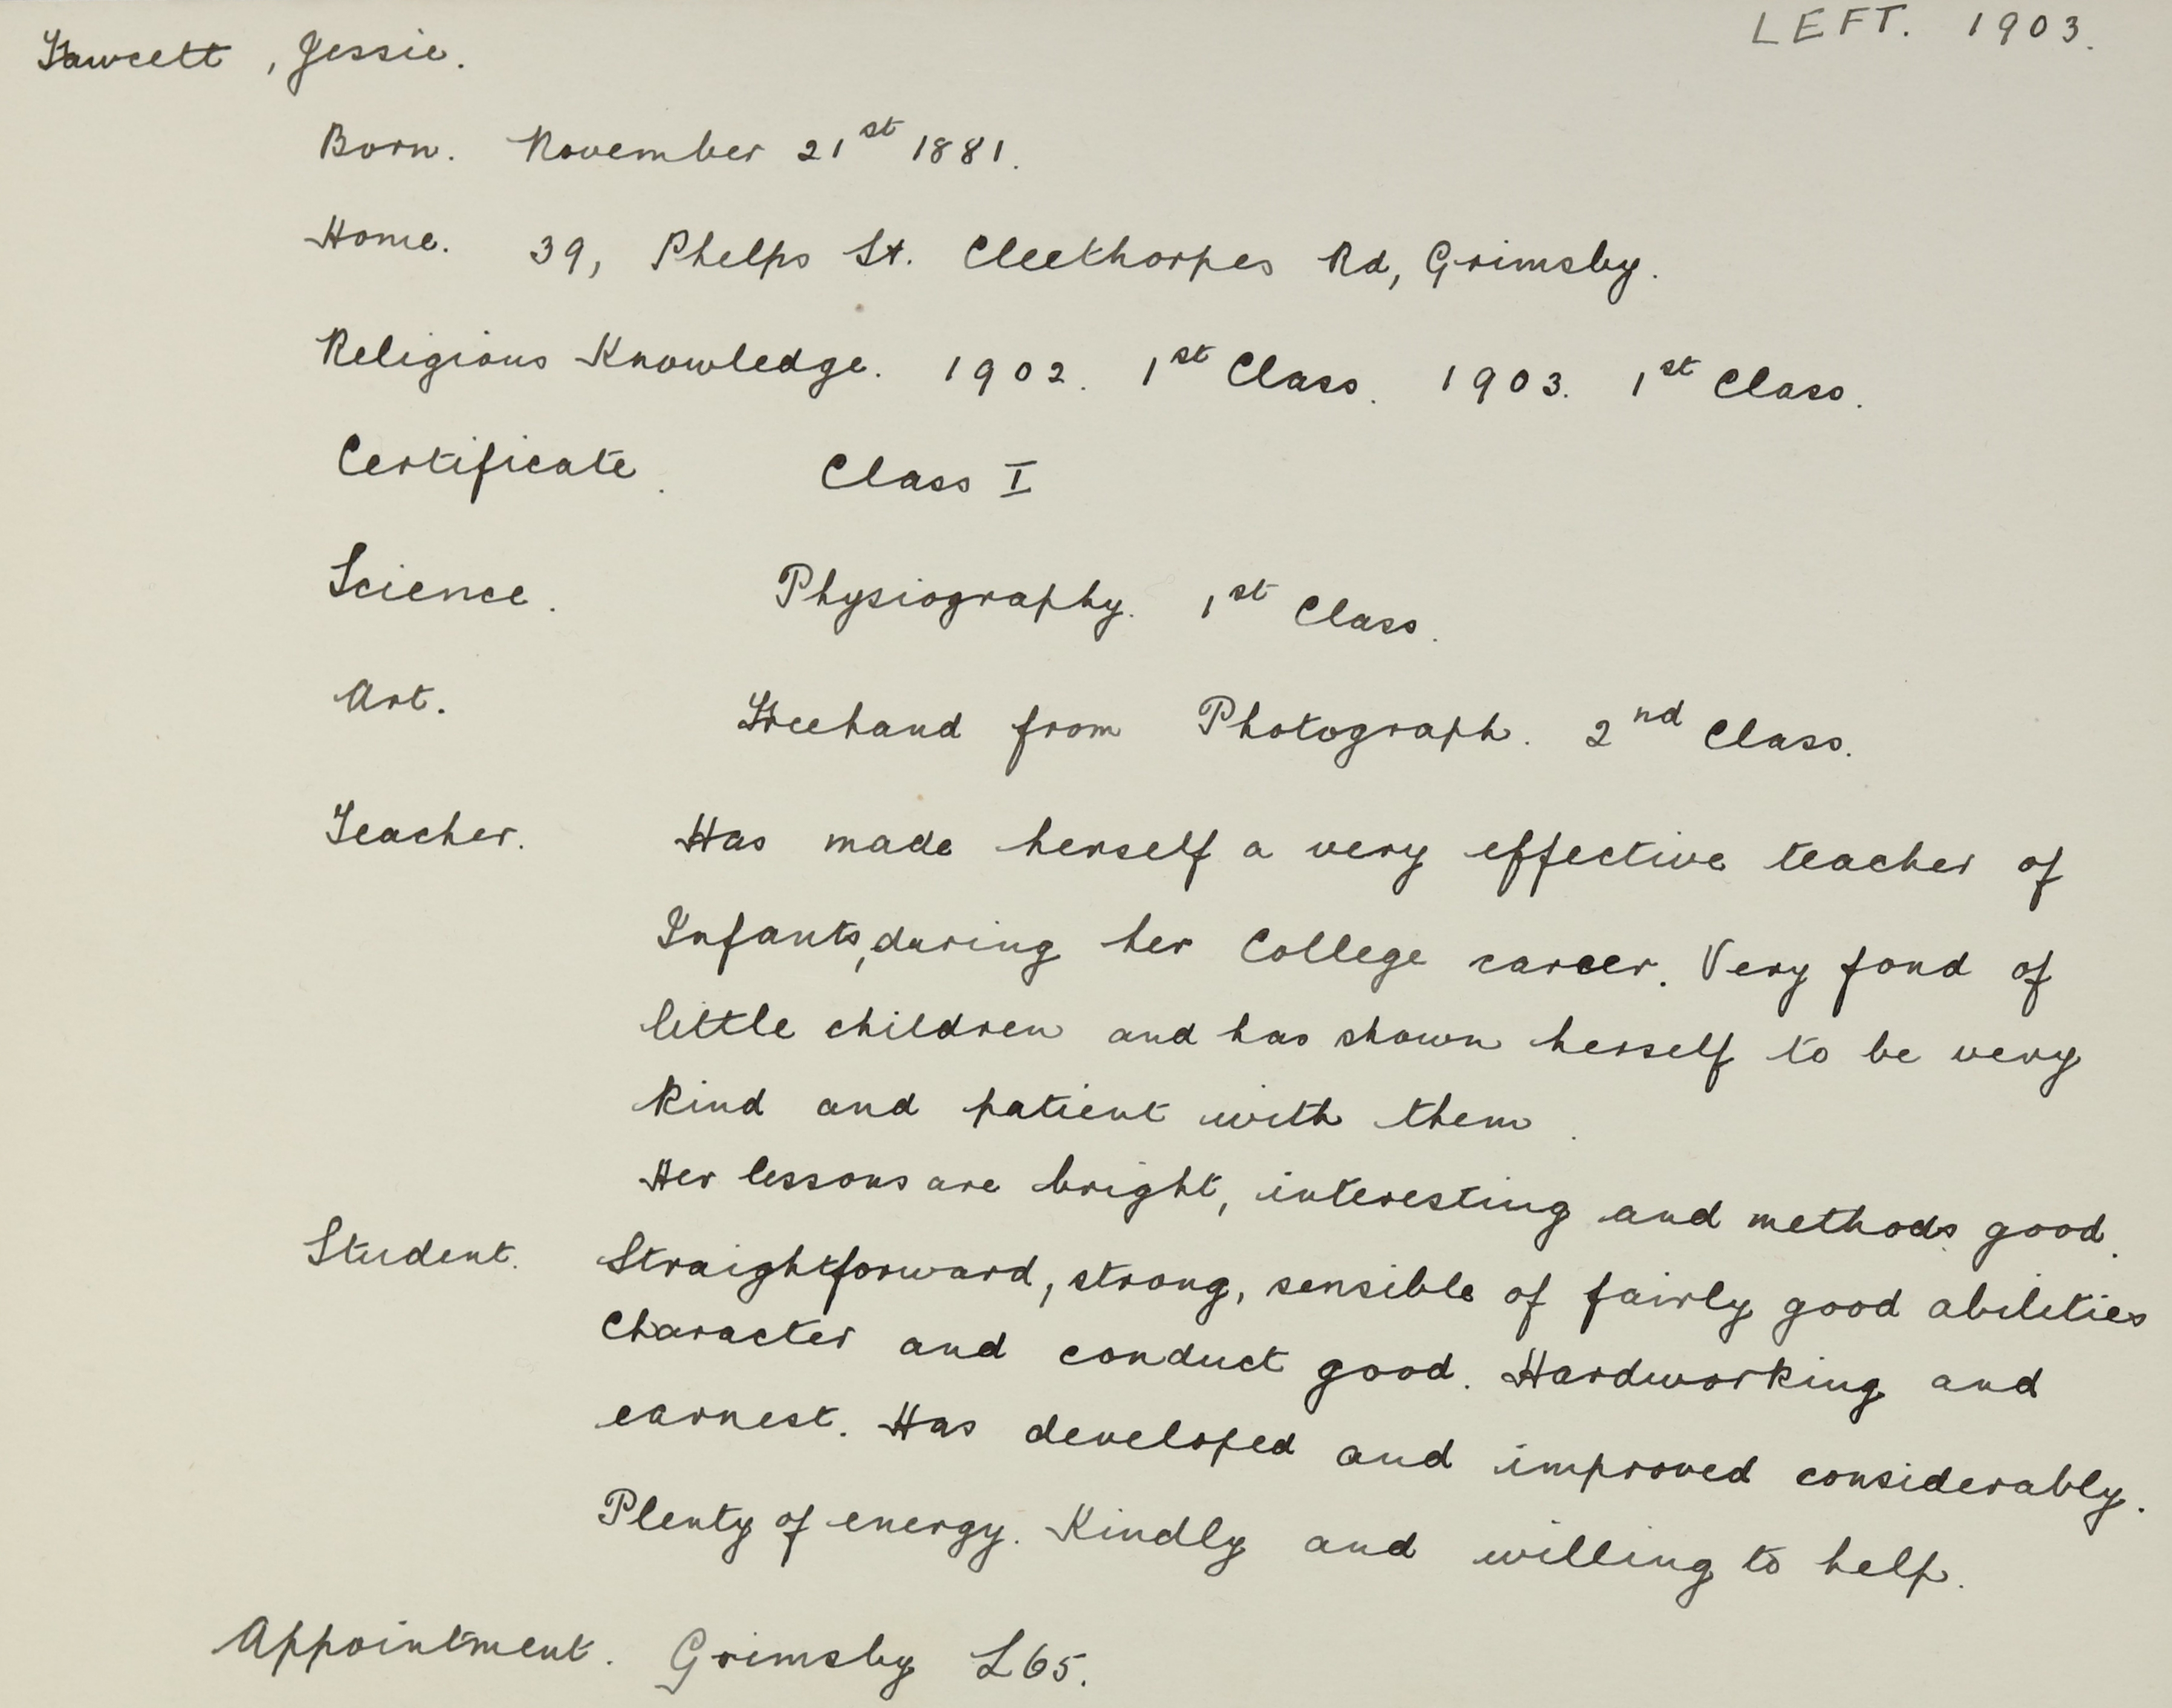 Fawcett, Jessie. LEFT. 1903.
Born. November 21st 1881.
Home. 39, Phelps St. Cleethorpes Rd, Grimsby.
Religious Knowledge. 1902. 1st Class. 1903. 1st Class.
Certificate. Class I
Science. Physiography. 1st Class.
Art. Freehand from Photograph. 2nd Class.
Teacher. Has made herself a very effective teacher of
Infants, during her College career. Very fond of
little children and has shown herself to be very
kind and patient with them.
Her lessons are bright, interesting and methods good.
Student. Straightforward, strong, sensible of fairly good abilities
Character and conduct good. Hardworking and
earnest. Has developed and improved considerably.
Plenty of energy. Kindly and willing to help.
Appointment. Grimsby £65.